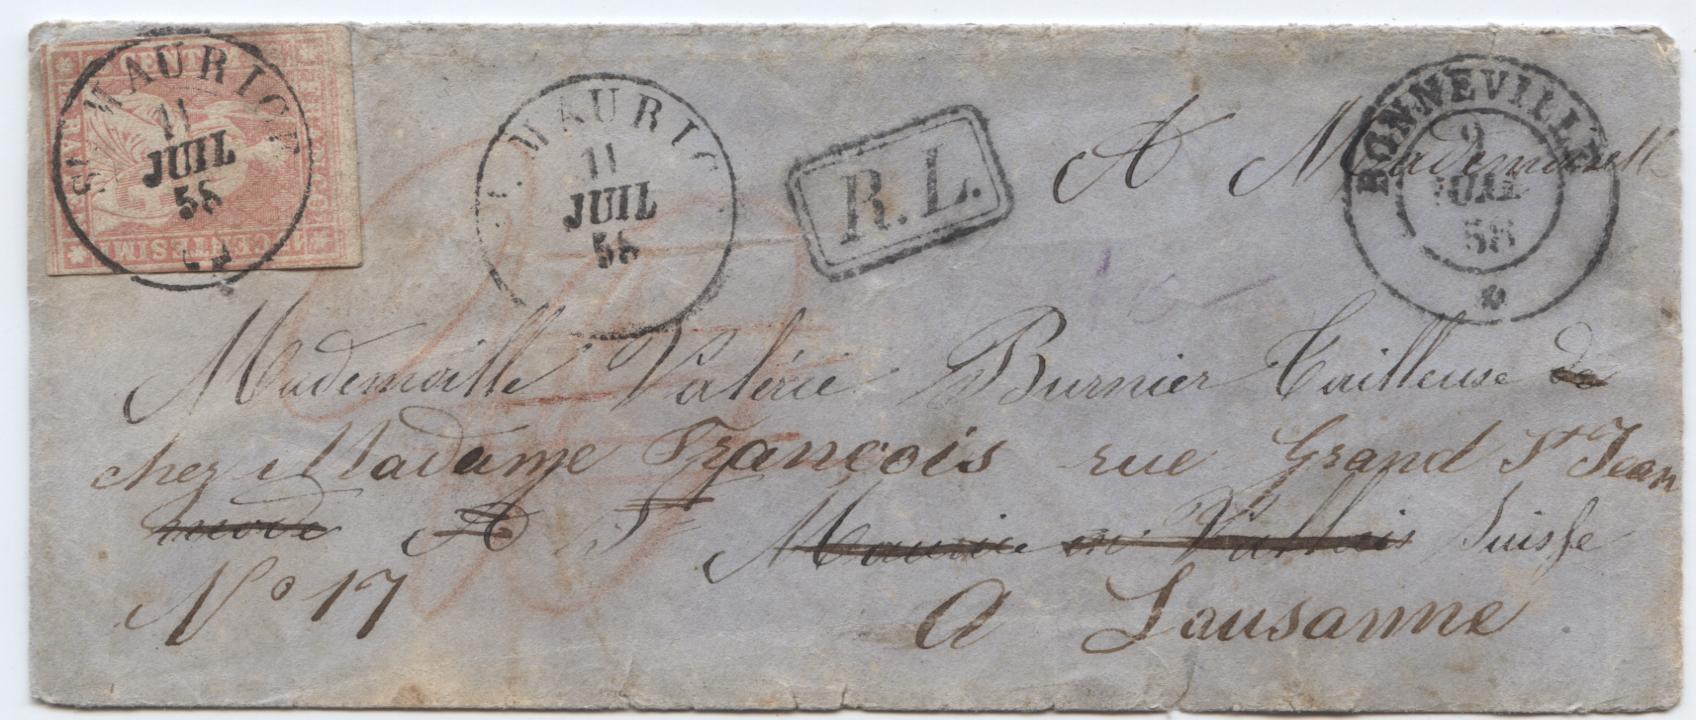 St. MAURICE
11
JUIL
58
CENTESIMI
St. MAURICE
11
JUIL
58
R. L.
BONNEVILLE
9
JUIL
58
A Mademoiselle
Mademoiselle Valérie Burnier Tailleuse de
chez Madame François rue Grand St Jean
A St Maurice en Vallais Suisse
No 17
A Lausanne